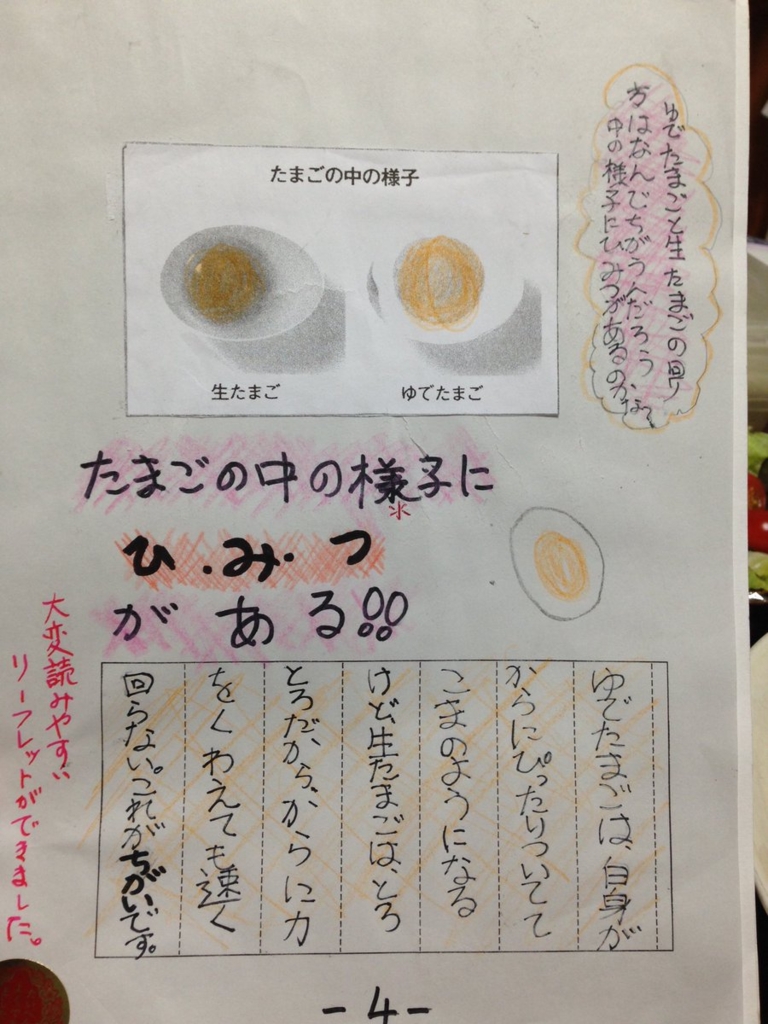 ゆでたまごと生たまごの回り
方はなんでちがうんだろう、
中の様子にひみつがあるのかな。
たまごの中の様子
生たまご
ゆでたまご
たまごの中の様子に
氺
ひ.み.つ
がある!!
ゆでたまごは、自身が
からにぴったりついてて
こまのようになる
けど、生たまごは、とろ
とろだから、からに力
をくわえても速く
回らない。これがちがいです。
大変読みやすい
リーフレットができました。
-4-